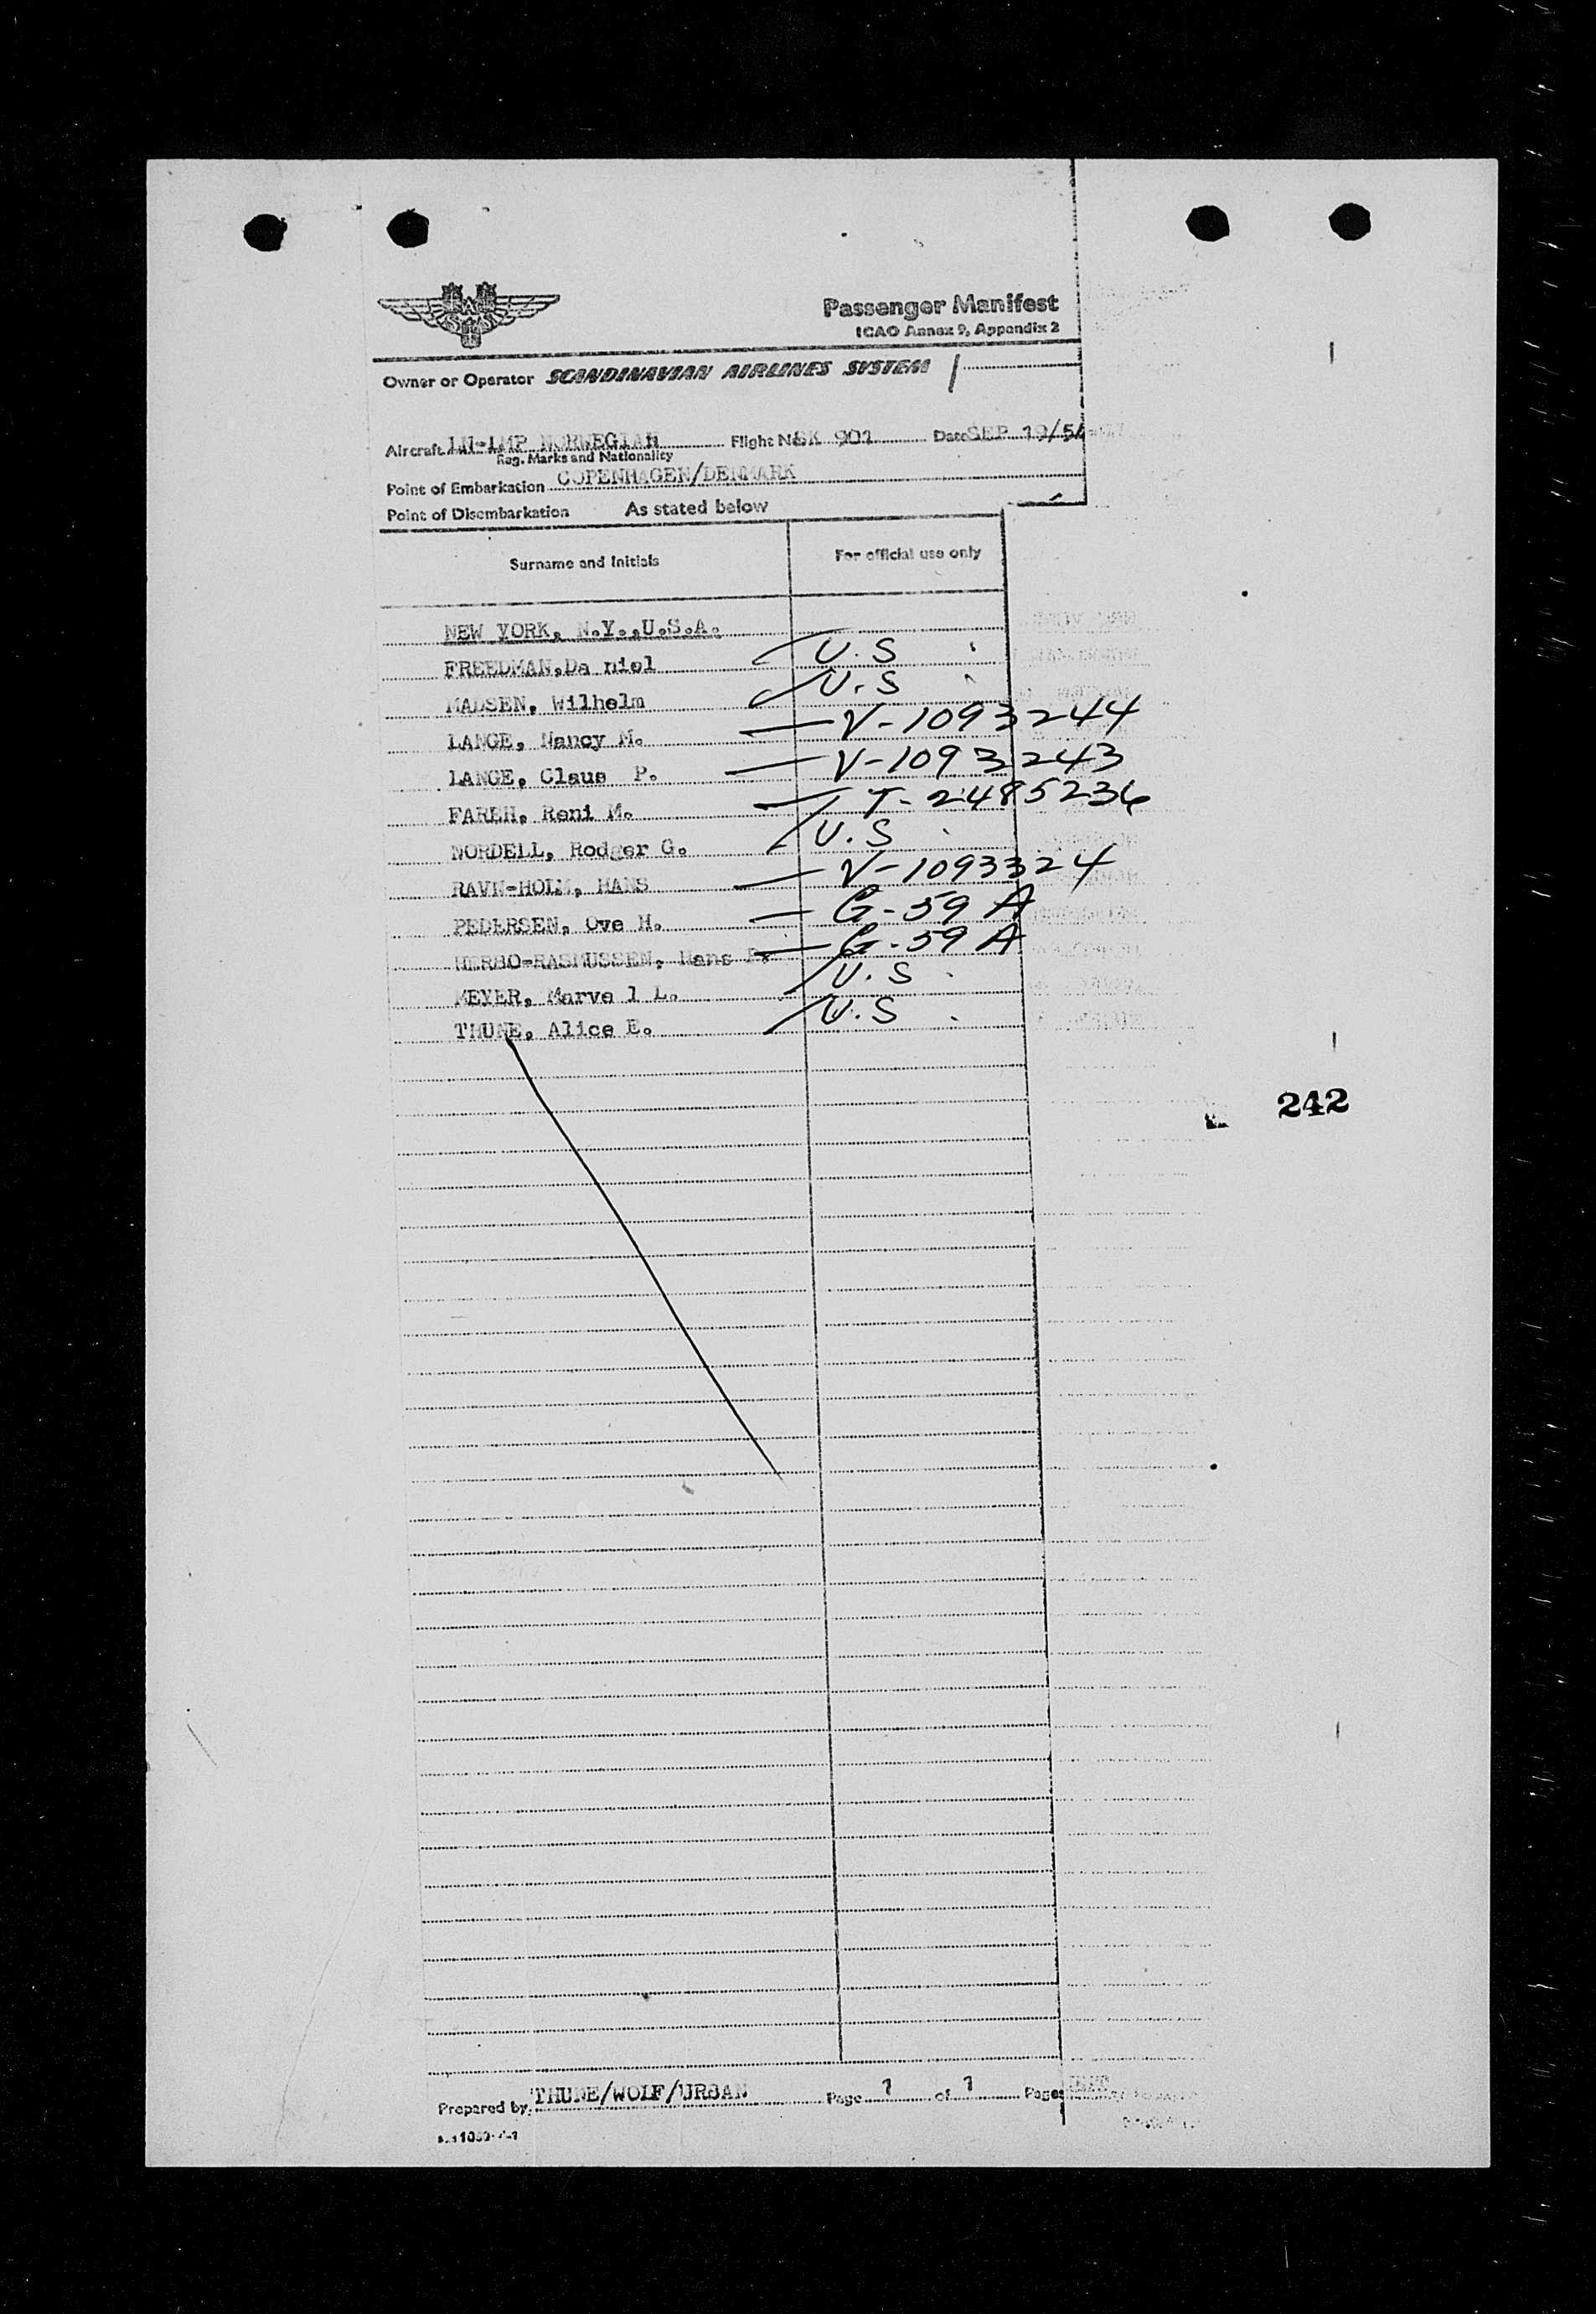 Passenger Manifest
ICAO Annex 9, Appendix 2
Owner or Operator SCANDINAVIAN AIRLINES SYSTEM
Aircraft LN-LMP NORWEGIAN Flight No SK 901 Date SEP 19/54
Reg. Marks and Nationality
Point of Embarkation COPENHAGEN/DENMARK
Point of Disembarkation As stated below
Surname and Initials For official use only
NEW YORK, N.Y.,U.S.A.
FREEDMAN,Da niel U.S
MADSEN, Wilhelm U.S
LANGE, Nancy M. V-1093244
LANGE, Claus P. V-1093243
FAREH, Reni M. T-2485236
NORDELL, Rodger G. U.S
RAVN-HOLM, HANS V-1093324
PEDERSEN, Ove H. G-59 A
HERBO-RASMUSSEN, Hans P. G-59 A
MEYER, Marve l L. U.S
THUNE, Alice E. U.S
242
Prepared by THUNE/WOLF/URBAN Page 1 of 1 Pages